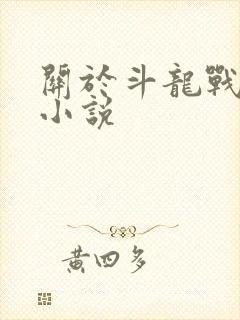 關於斗龍戰
小說
黃四多